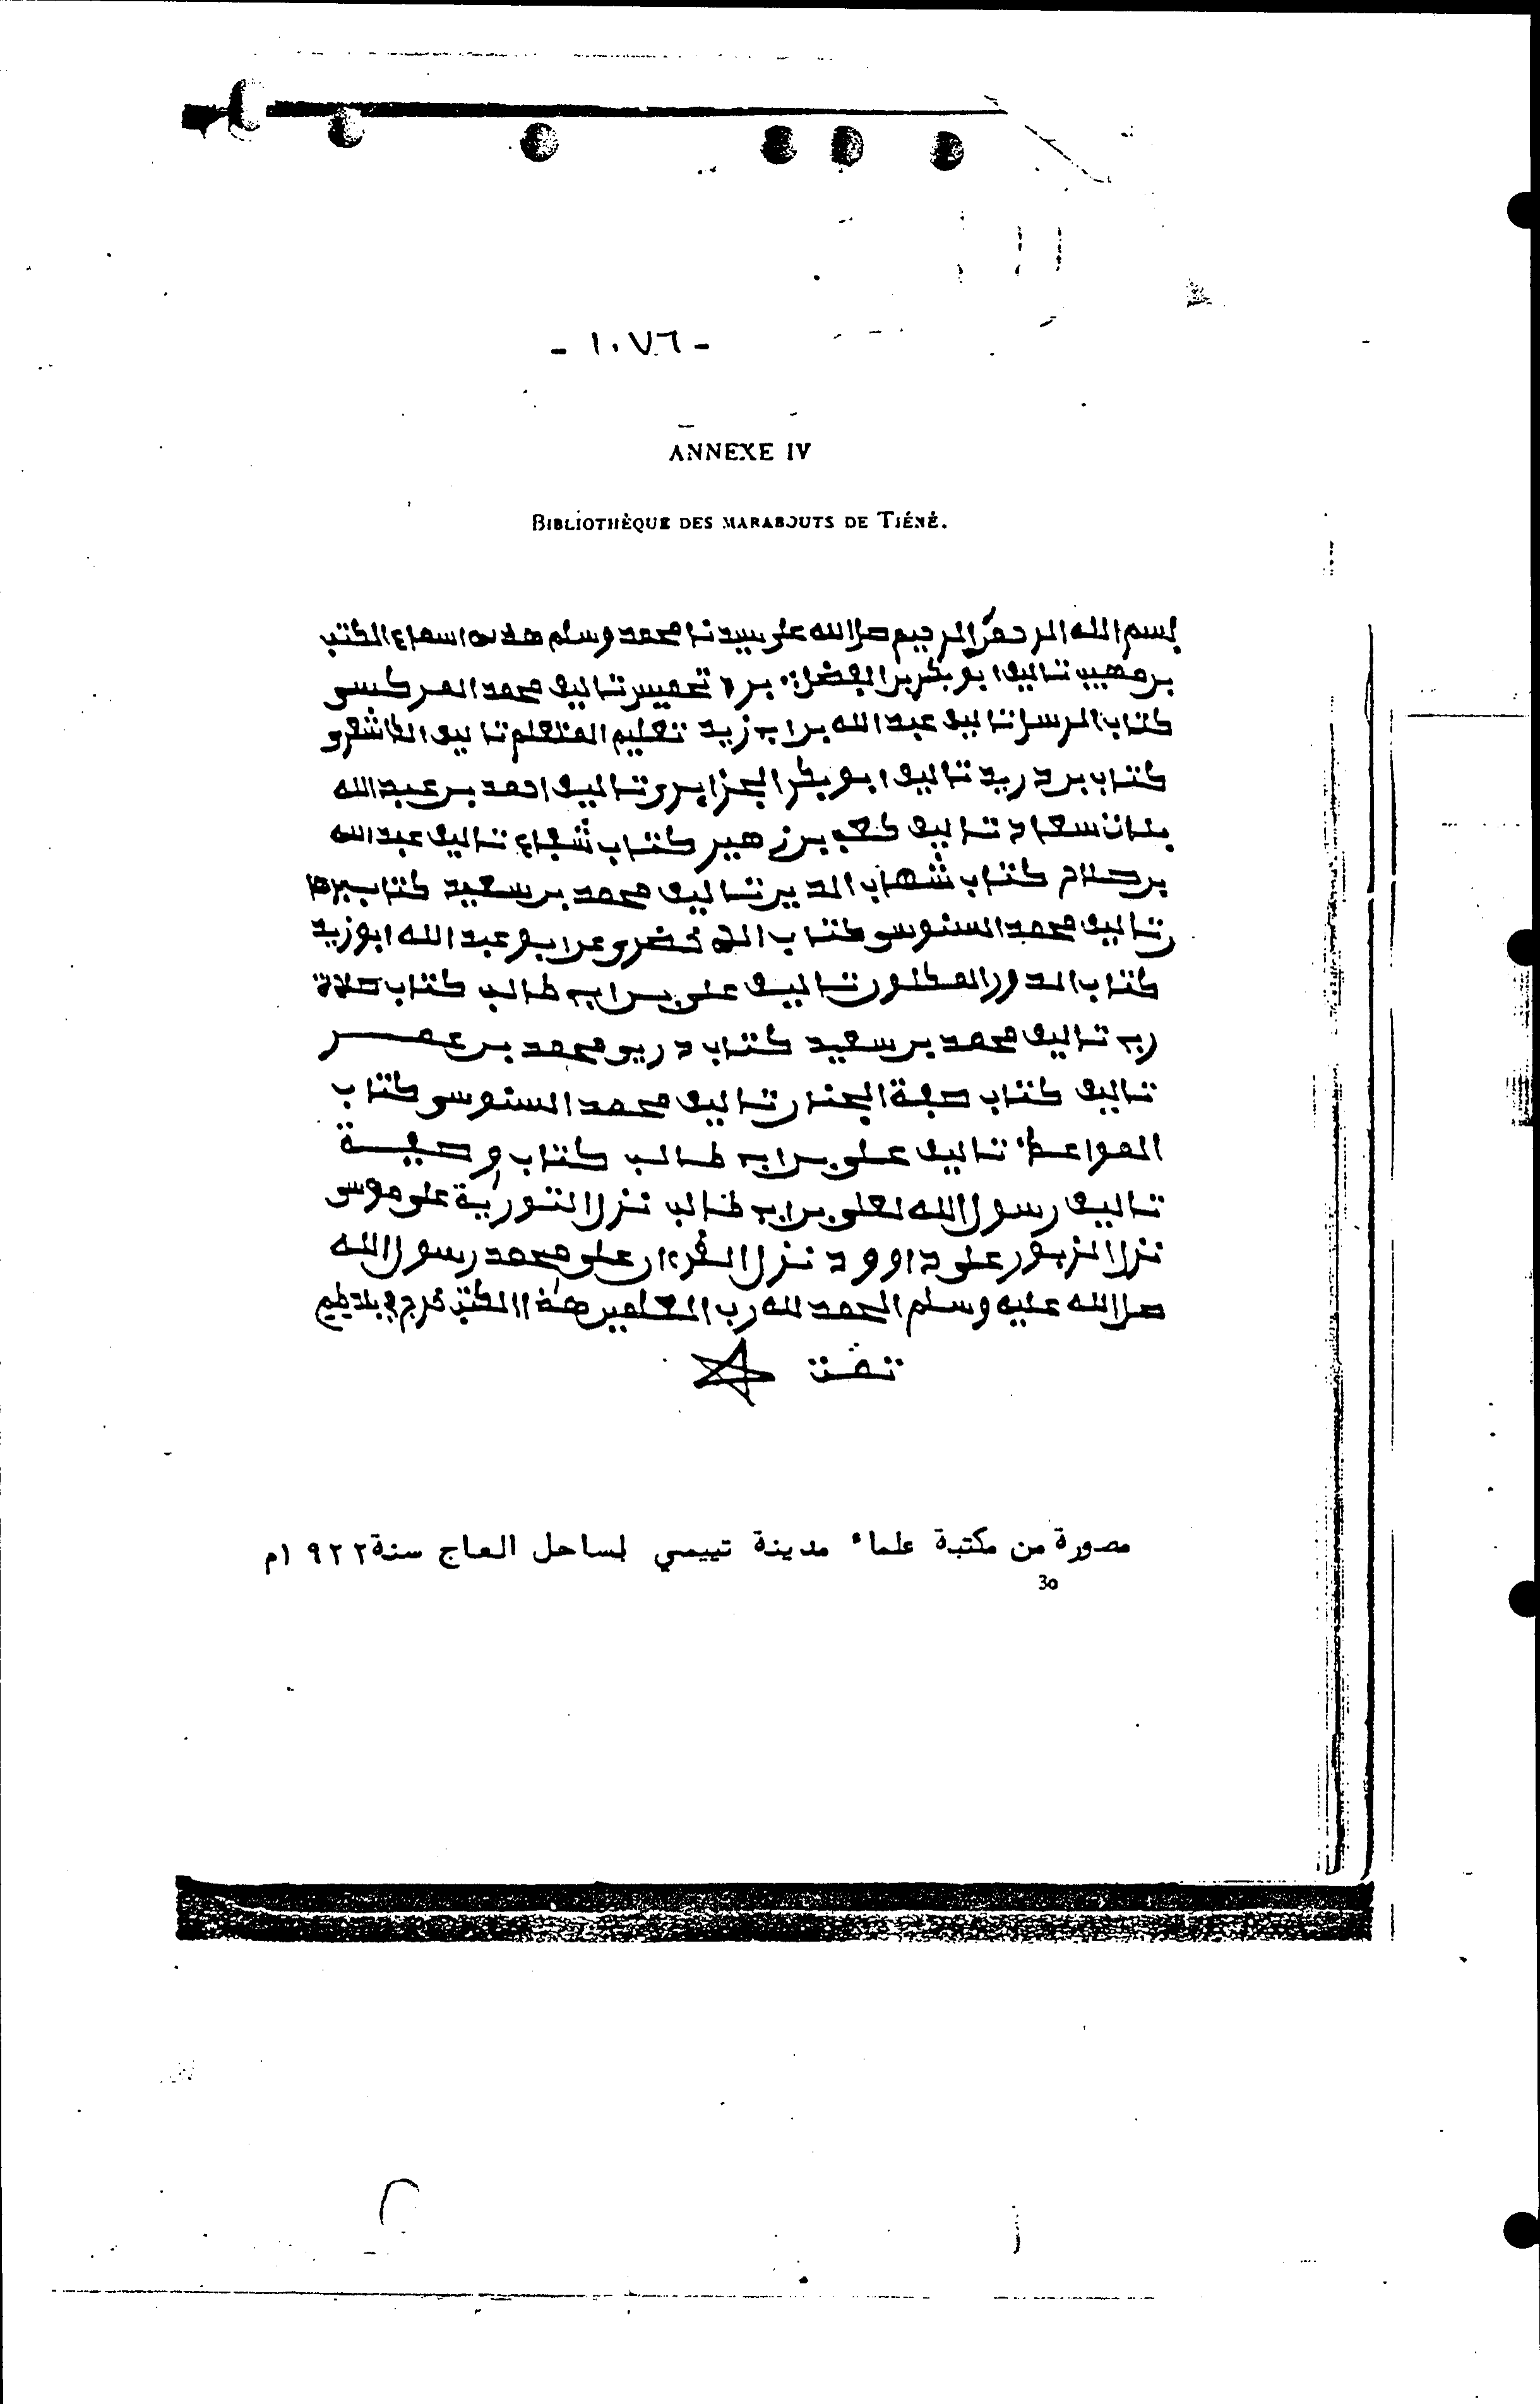 - ١٠٧٦ -
ANNEXE IV
BIBLIOTHÈQUE DES MARABOUTS DE TIÉNÉ.
بسم الله الرحمن الرحيم صلا الله على سيدنا محمد وسلم اسماء الكتب
بن مهيب تاليف ابو بكر بن تاليف محمد
كتاب الرسا تاليف عبد الله بن ابي زيد تعليم المتعلم تاليف
كتاب بن دريد تاليف ابو بكر الجزايرى تاليف احمد بن عبد الله
بانت سعاد تاليف كعب بن زهير كتاب شفاء تاليف عبد الله
كتاب شهاب الدين تاليف محمد بن سعيد كتاب
تاليف محمد السنوسى كتاب عبد الله ابو زيد
كتاب الدور تاليف على بن ابي طالب كتاب صلاة
ربي تاليف محمد بن سعيد كتاب محمد بن عمر
تاليف كتاب صفة الجنان تاليف محمد السنوسى كتاب
المواعظ تاليف على بن ابي طالب كتاب وصية
تاليف رسول الله لعلى بن ابي طالب نزل التورية على موسى
نزل الزبور على داوود نزل الفرءان على محمد رسول الله
صلا الله عليه وسلم الحمد لله رب العلمين الكتب
تمت
مصورة من مكتبة علماء مدينة تييمي لساحل العاج سنة ١٩٢٢م
30